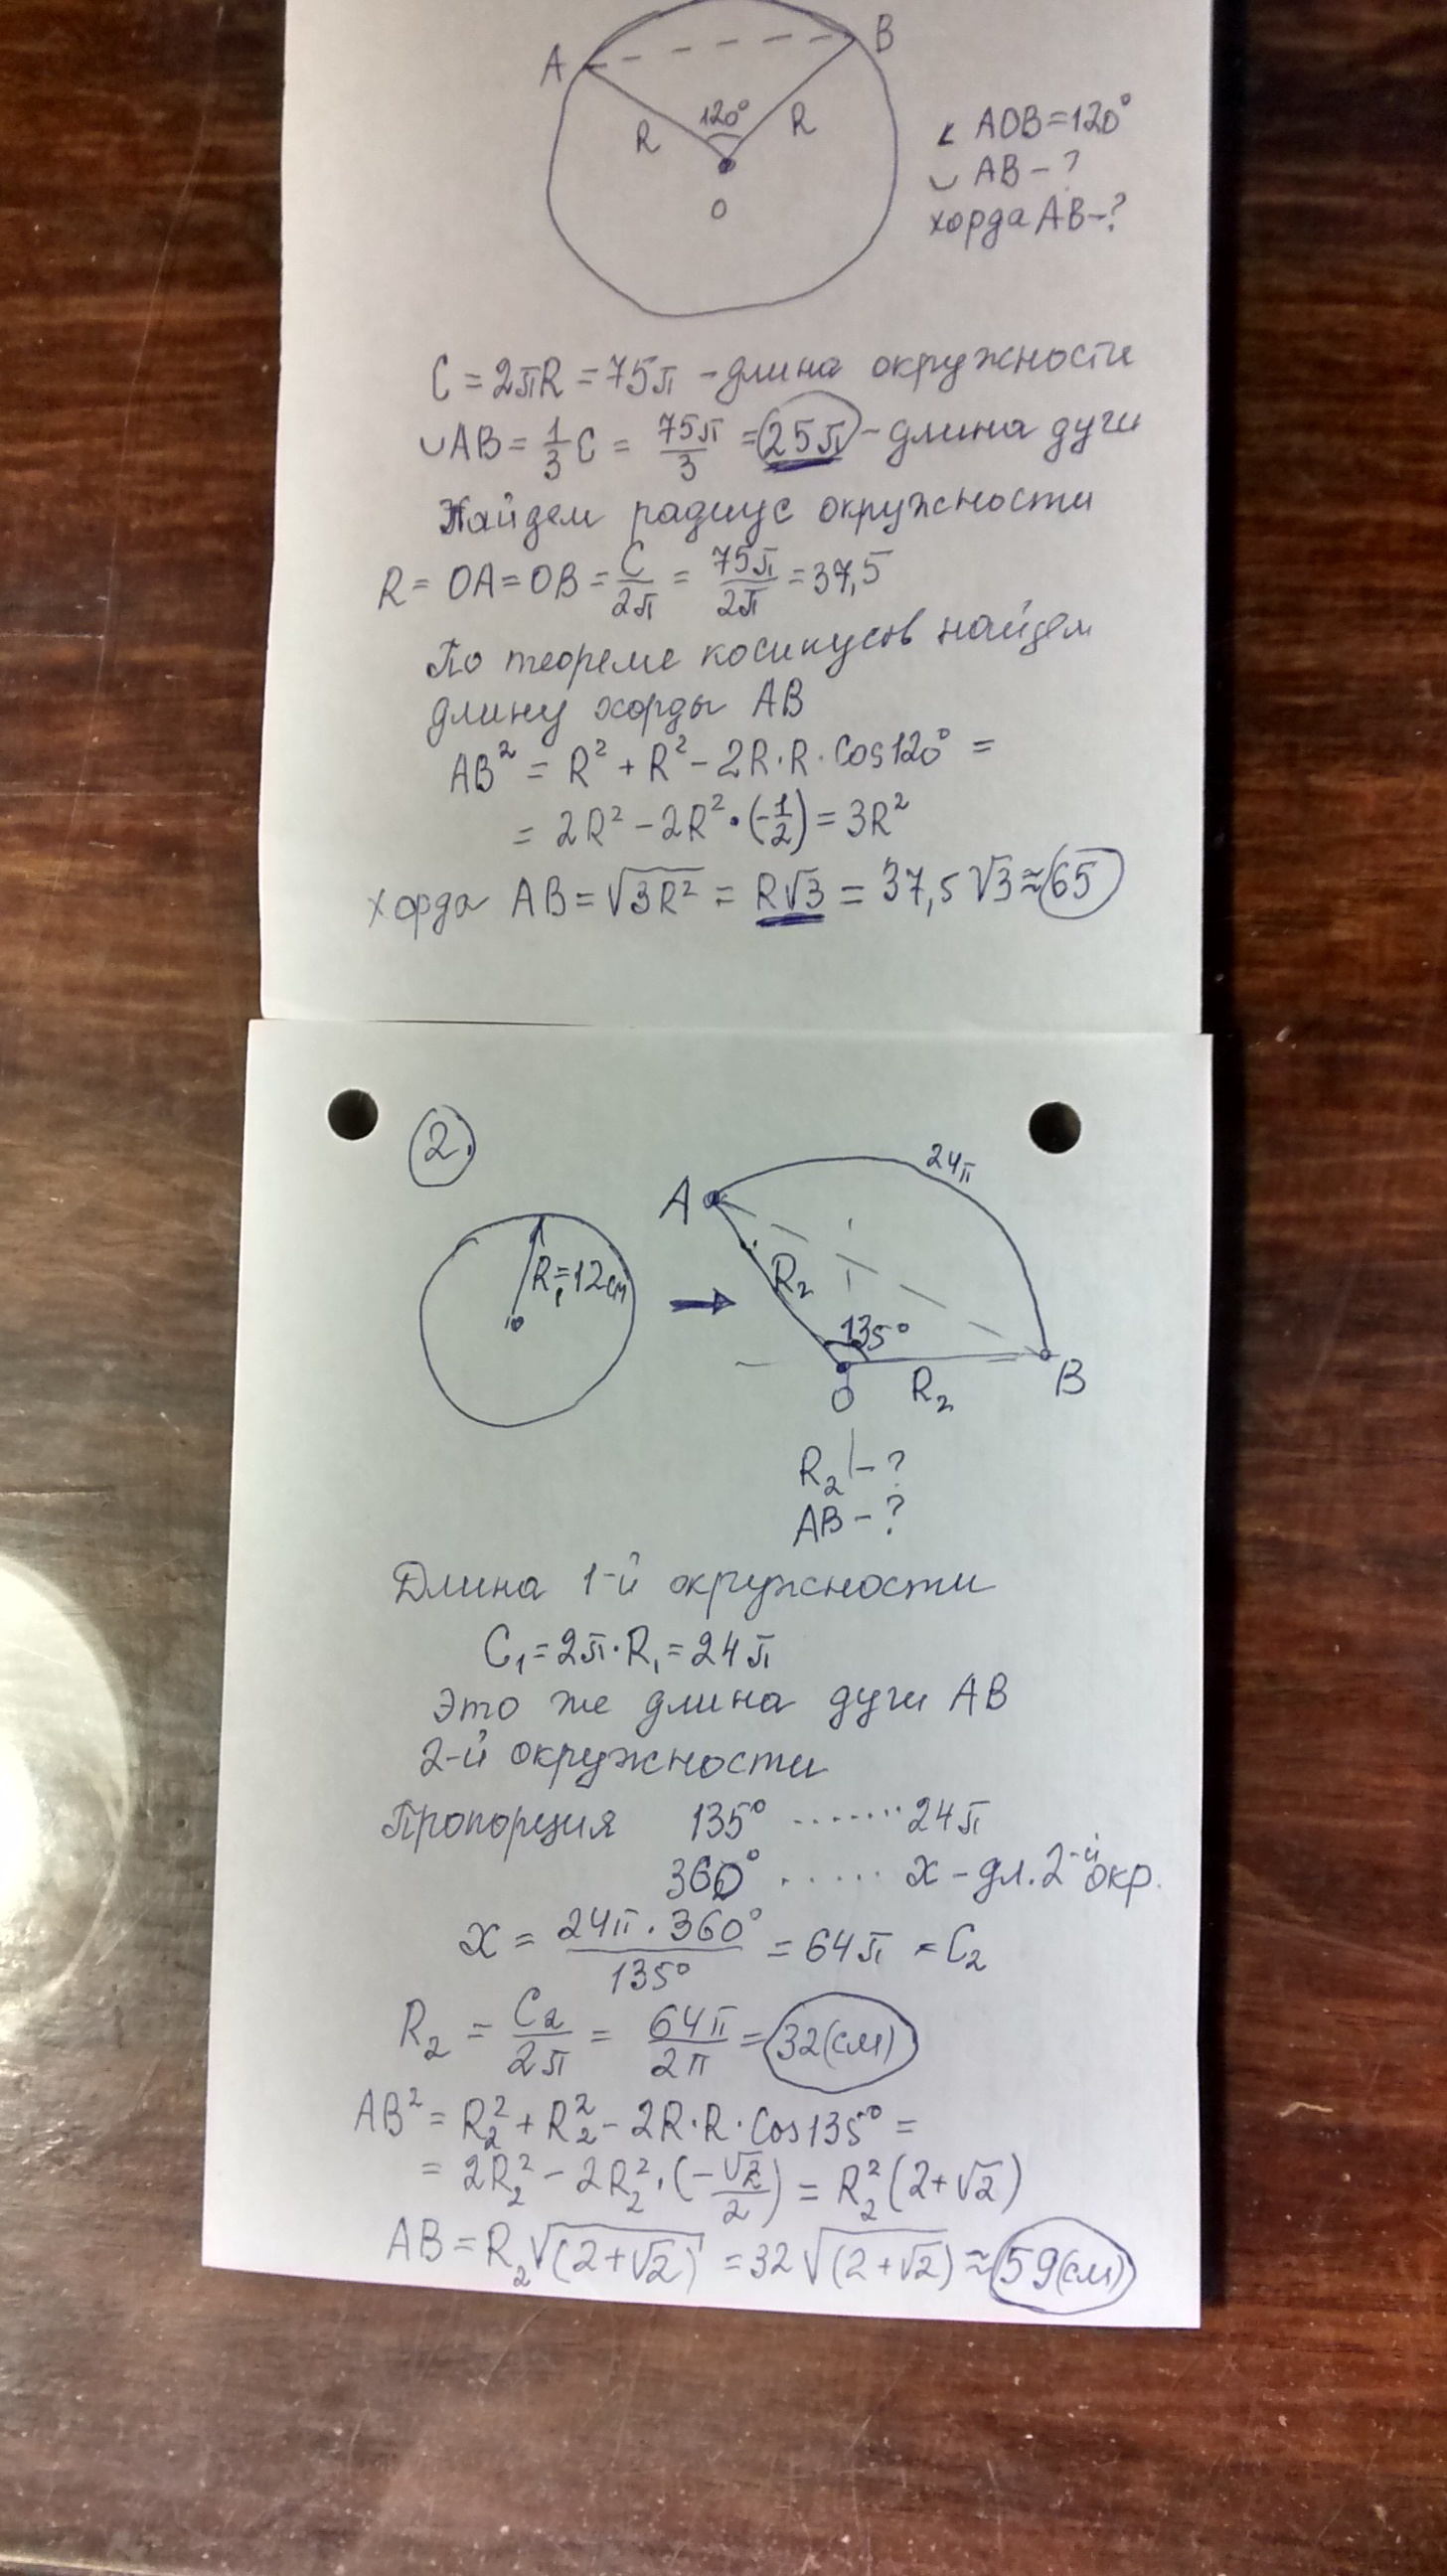 A
B
120°
R
R
O
∠ AOB=120°
◡ AB-?
хорда AB-?
C = 2πR = 75π - длина окружности
◡AB = 1/3 C = 75π/3 = 25π - длина дуги
Найдем радиус окружности
R = OA = OB = C/2π = 75π/2π = 37,5
По теореме косинусов найдем
длину хорды AB
AB² = R² + R² - 2R·R·Cos120° =
= 2R² - 2R²·(-1/2) = 3R²
хорда AB = √3R² = R√3 = 37,5√3 ≈ 65
2.
24π
A
R₁=12см
R₂
135°
O
R₂
B
R₂ - ?
AB - ?
Длина 1-й окружности
C₁ = 2π·R₁ = 24π
Это же длина дуги AB
2-й окружности
Пропорция 135° ....... 24π
360° ...... x - дл. 2-й окр.
x = 24π·360°/135° = 64π = C₂
R₂ = C₂/2π = 64π/2π = 32(см)
AB² = R₂² + R₂² - 2R·R·Cos135° =
= 2R₂² - 2R₂²·(-√2/2) = R₂²(2+√2)
AB = R₂√(2+√2) = 32√(2+√2) ≈ 59(см)